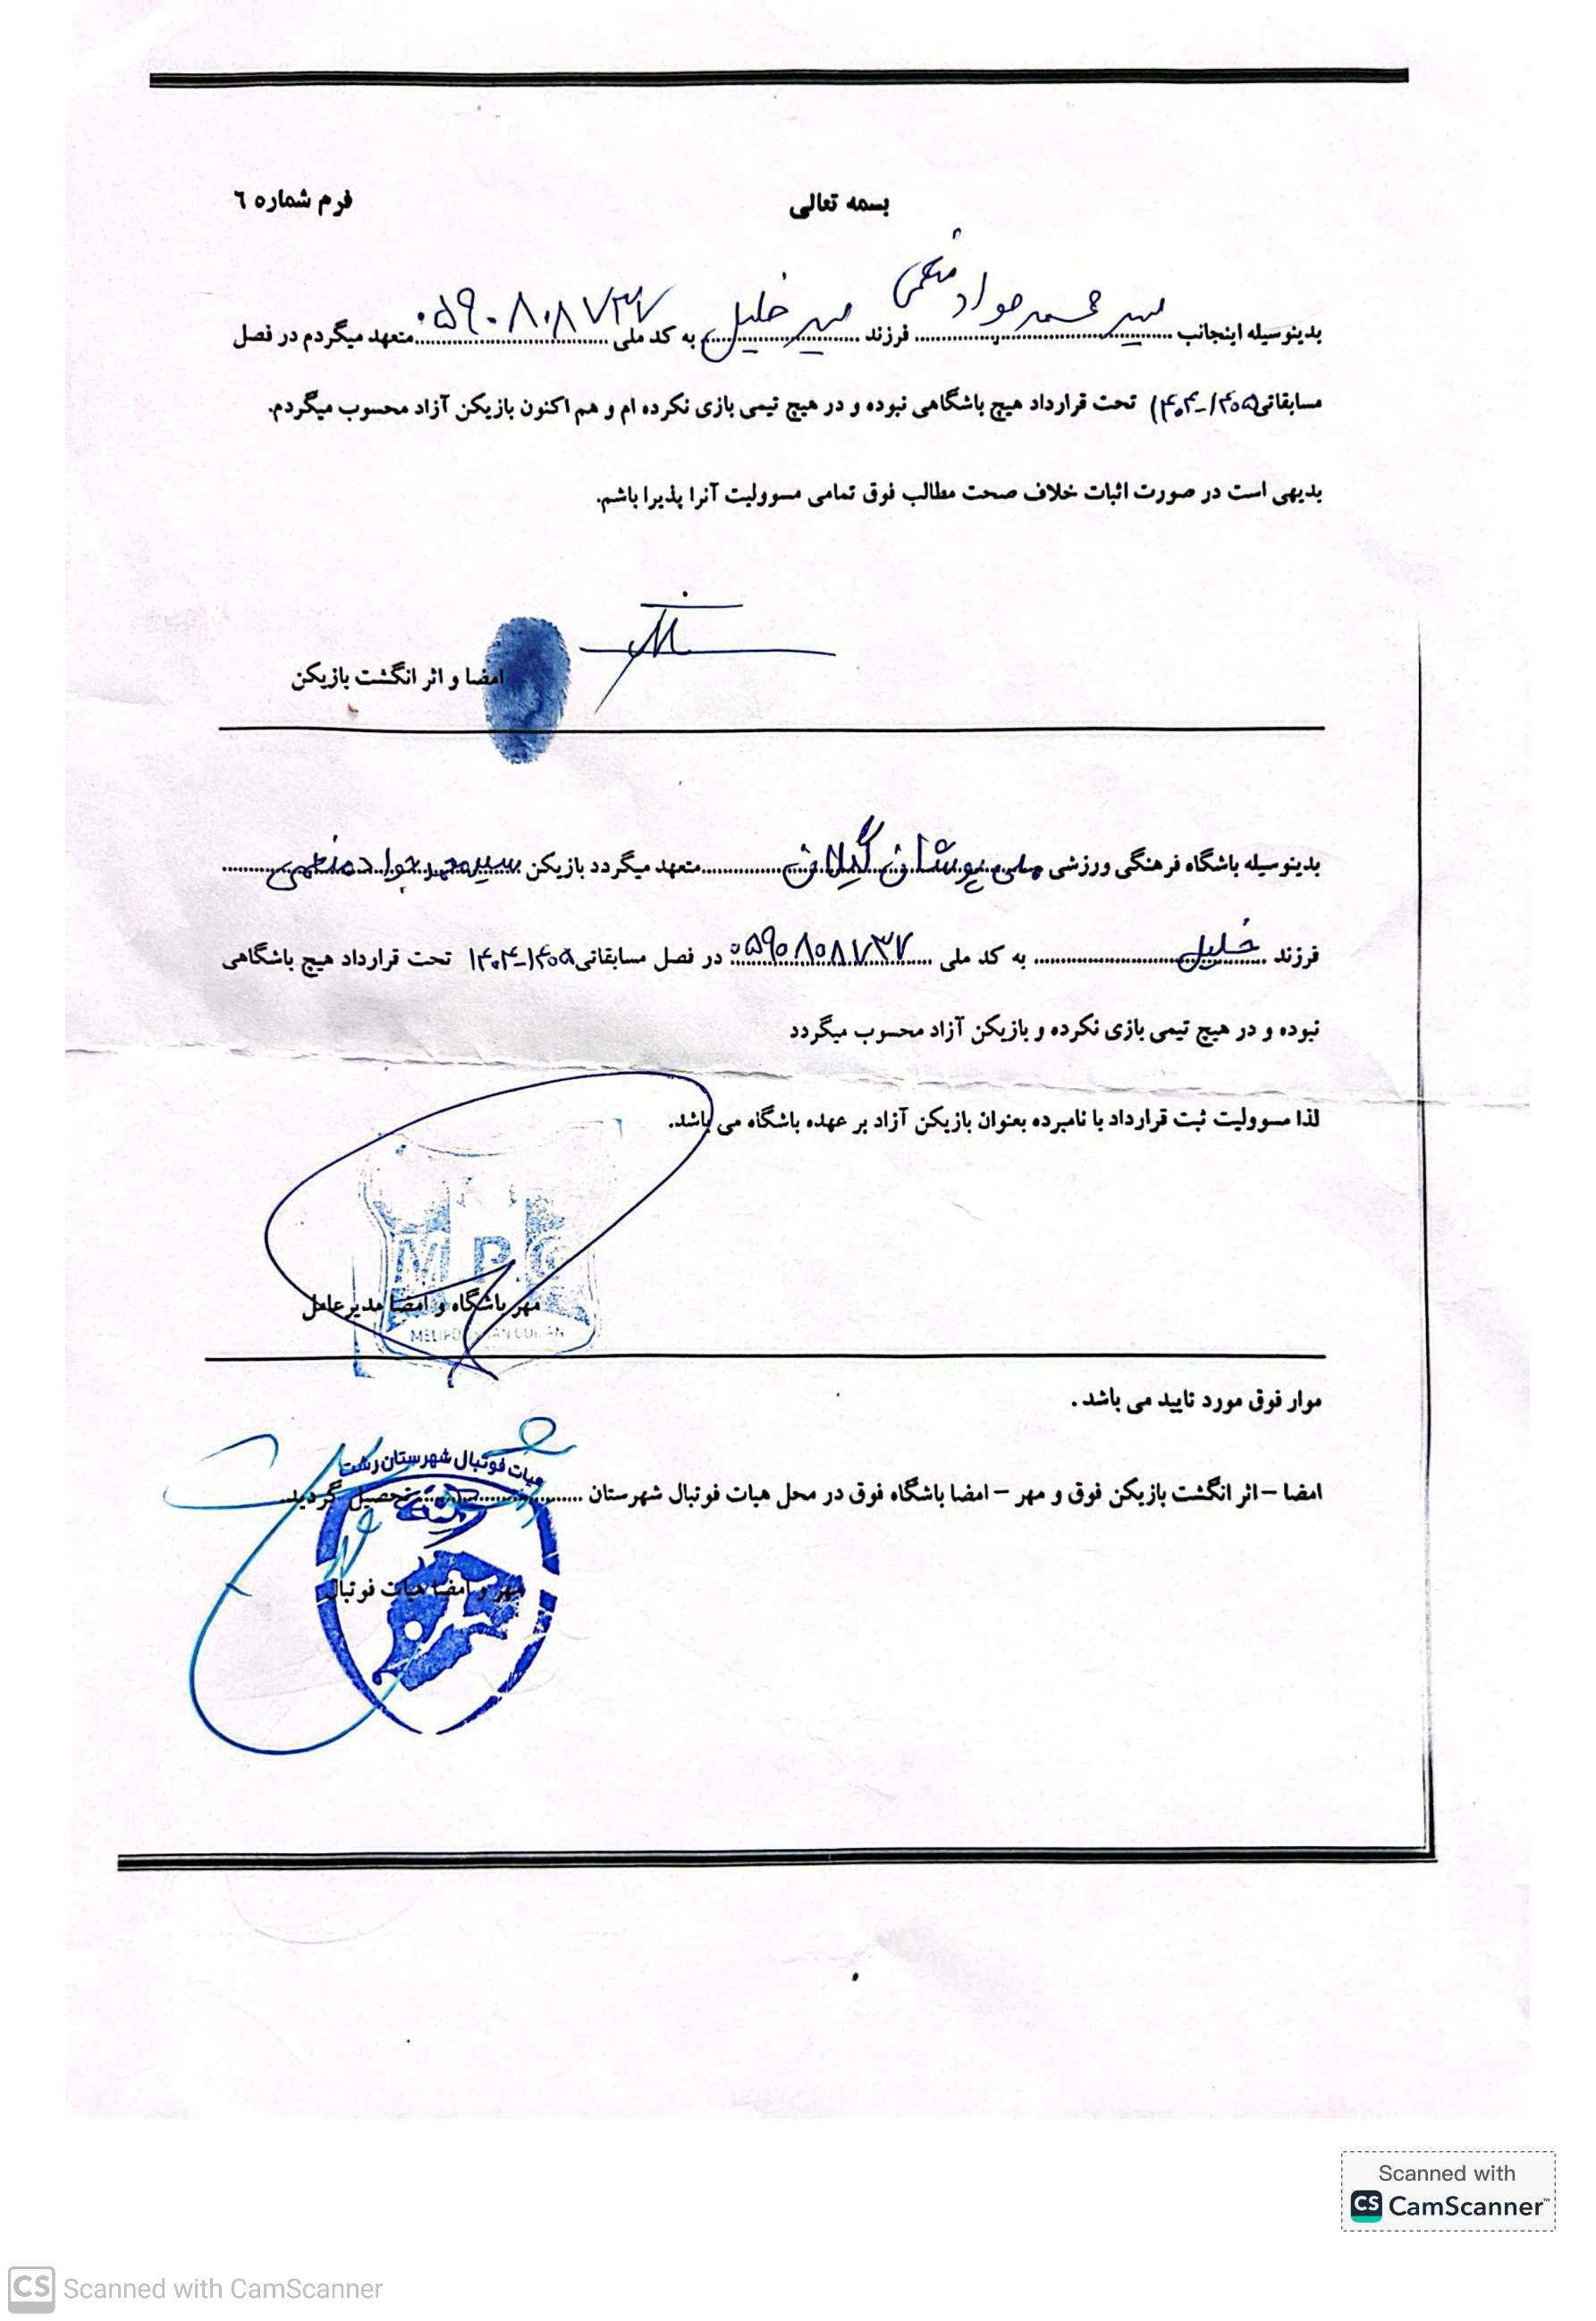 بسمه تعالی
فرم شماره ٦
بدینوسیله اینجانب سید محمد جواد منعمی فرزند سید خلیل به کد ملی ۰۵۹۰۸۰۸۷۳۷ متعهد میگردم در فصل
مسابقاتی ۱۴۰۵-۱۴۰۴ تحت قرارداد هیچ باشگاهی نبوده و در هیچ تیمی بازی نکرده ام و هم اکنون بازیکن آزاد محسوب میگردم.
بدیهی است در صورت اثبات خلاف صحت مطالب فوق تمامی مسوولیت آنرا پذیرا باشم.
امضا و اثر انگشت بازیکن
بدینوسیله باشگاه فرهنگی ورزشی ملی پوشان گیلان متعهد میگردد بازیکن سید محمد جواد منعمی
فرزند خلیل به کد ملی ۰۵۹۰۸۰۸۷۳۷ در فصل مسابقاتی ۱۴۰۵-۱۴۰۴ تحت قرارداد هیچ باشگاهی
نبوده و در هیچ تیمی بازی نکرده و بازیکن آزاد محسوب میگردد
لذا مسوولیت ثبت قرارداد با نامبرده بعنوان بازیکن آزاد بر عهده باشگاه می باشد.
M.P.G
مهر باشگاه و امضا مدیرعامل
موار فوق مورد تایید می باشد .
هیات فوتبال شهرستان رشت
امضا – اثر انگشت بازیکن فوق و مهر – امضا باشگاه فوق در محل هیات فوتبال شهرستان تحصیل گردید.
مهر و امضا هیات فوتبال
Scanned with
CS CamScanner™
CS Scanned with CamScanner